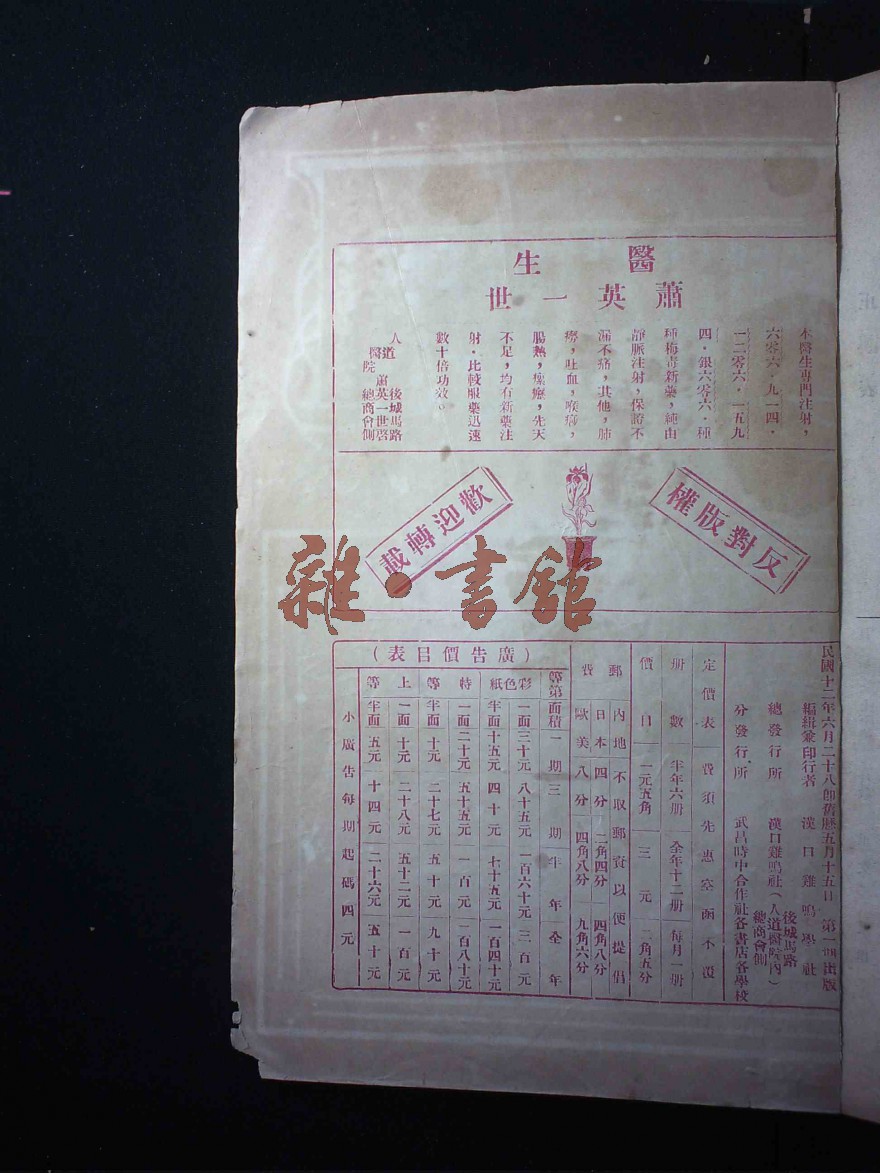 醫生
蕭英一世
本醫生專門注射，
六零六·九一四·
一二零六·一五九
四·銀六零六·種
種梅毒新藥，純由
靜脈注射，保證不
漏不痛，其他，肺
癆，吐血，喉痧，
腸熱，瘰癧，先天
不足，均有新藥注
射·比較服藥迅速
數十倍功效。
人道醫院
蕭英一世啓
後城馬路
總商會側
反對版權
歡迎轉載
雜·書館
民國十二年六月二十八即舊歷五月十五日 第一期出版
編緝兼印行者 漢口雞鳴學社
總發行所 漢口雞鳴社（人道醫院內）
後城馬路
總商會側
分發行所 武昌時中合作社各書店各學校
定價表 費須先惠空函不覆
册數 半年六册 全年十二册 每月一册
價目 一元五角 三元 二角五分
郵費
內地 不取郵資以便提倡
日本 四分 二角四分 四角八分
歐美 八分 四角八分 九角六分
（廣告價目表）
等第 面積 一期 三期 半年 全年
彩色紙 一面 三十元 八十五元 一百六十元 三百元
半面 十五元 四十元 七十五元 一百四十元
特等 一面 二十元 五十五元 一百元 一百八十元
半面 十元 二十七元 五十元 九十元
上等 一面 十元 二十八元 五十二元 一百元
半面 五元 十四元 二十六元 五十元
小廣告每期起碼四元